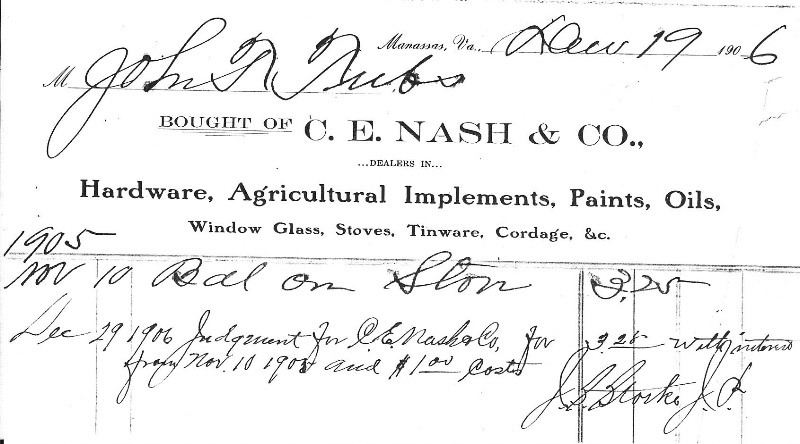 Manassas, Va., Dec 19 1906
M John R
BOUGHT OF C. E. NASH & CO.,
...DEALERS IN...
Hardware, Agricultural Implements, Paints, Oils,
Window Glass, Stoves, Tinware, Cordage, &c.
1905
Nov 10 Bal on Stov 3.25
Dec 29 1906 Judgment for C.E. Nash & Co, for 3.25 with interes
from Nov 10 1905 and $1.00 Costs
J. P.